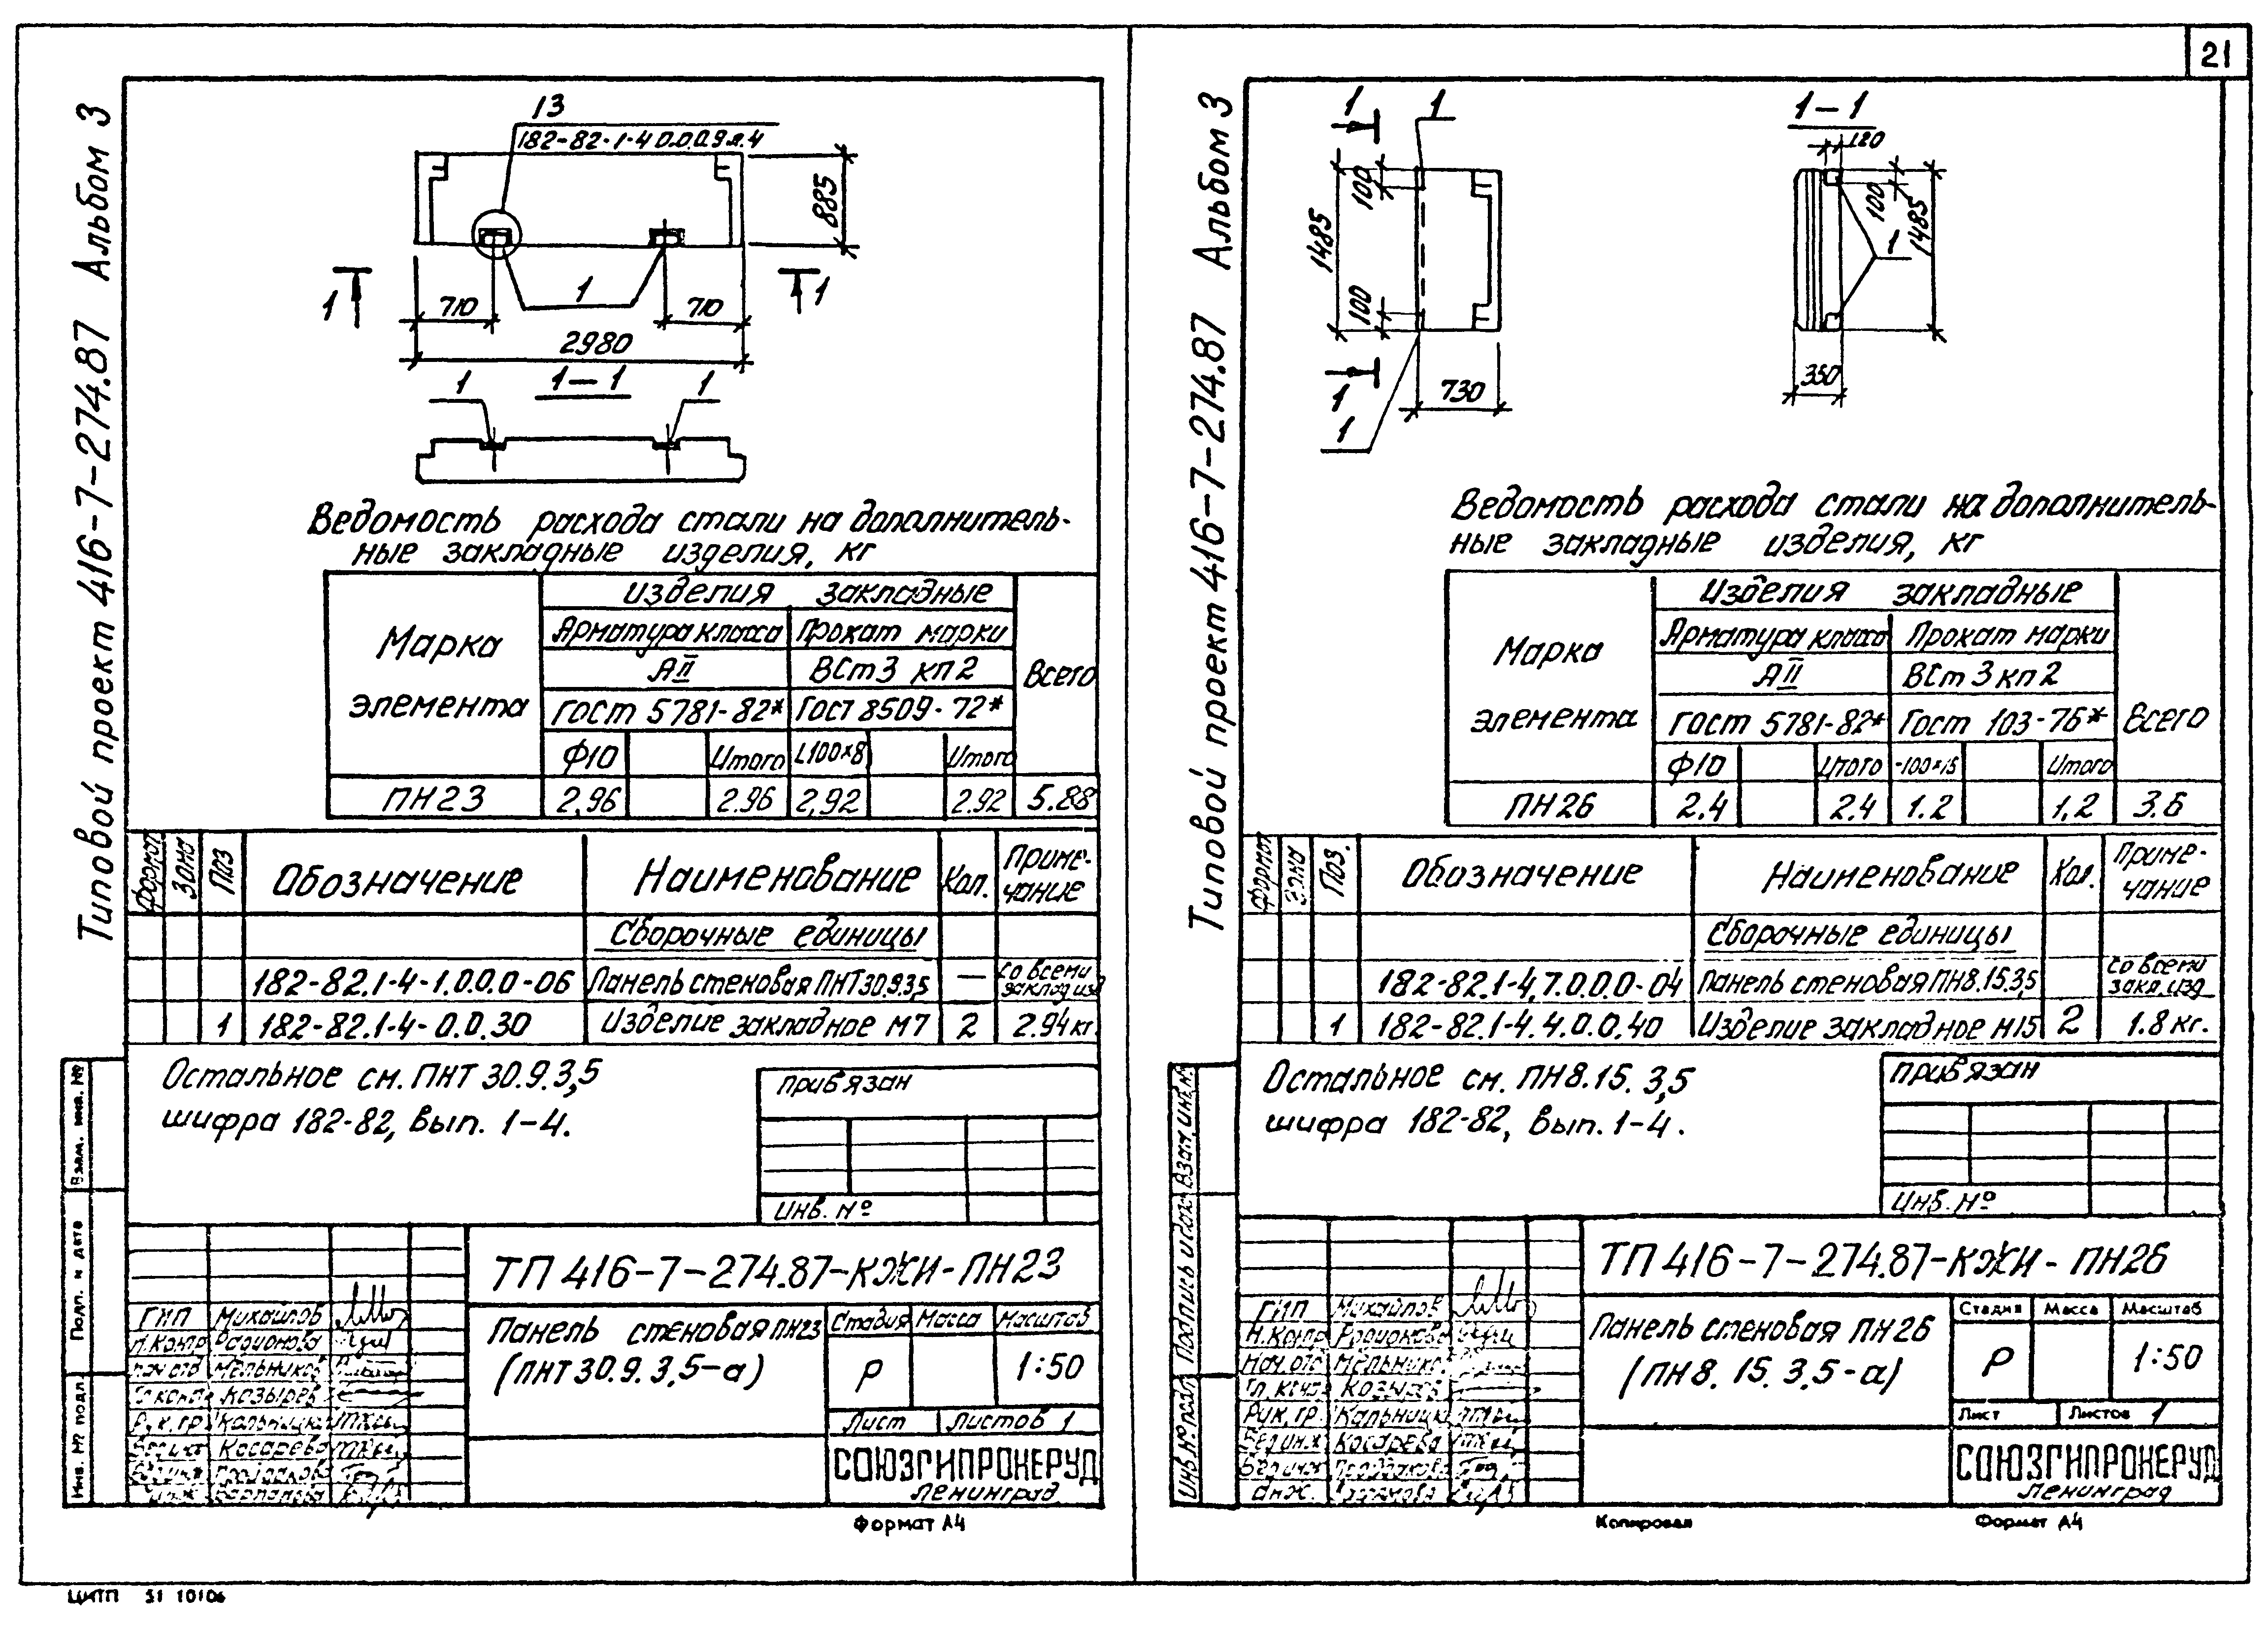 21
Типовой проект 416-7-274.87 Альбом 3
13
182-82-1-4 0.0.0.9 л.4
885
1 1 1
710 710
2980
1-1
1 1
Ведомость расхода стали на дополнитель-
ные закладные изделия, кг
Марка элемента
Изделия закладные
Всего
Арматура класса Прокат марки
АII ВСт3 кп2
ГОСТ 5781-82* ГОСТ 8509-72*
Ф10 Итого L100×8 Итого
ПН23 2,96 2.96 2,92 2.92 5.88
Формат Зона Поз Обозначение Наименование Кол. Приме-
чание
Сборочные единицы
182-82.1-4-1.0.0.0-06 Панель стеновая ПНТ30.9.3,5 — со всеми
заклад изд
1 182-82.1-4-0.0.30 Изделие закладное М7 2 2.94кг.
Остальное см. ПНТ 30.9.3,5
шифра 182-82, вып. 1-4.
Привязан
Инв. №
Взам. инв. №
Подп. и дата
Инв. № подл.
ТП 416-7-274.87-КЖИ-ПН23
ГИП Михайлов
Н.контр Родионова
Нач отд Мельников
Гл конс Козырев
Рук. гр.
Вед.инж Косарева
Вед.инж
Инж.
Панель стеновая ПН23
(ПНТ 30.9.3,5-а)
Стадия Масса Масштаб
Р 1:50
Лист Листов 1
СОЮЗГИПРОНЕРУД
Ленинград
Формат А4
Типовой проект 416-7-274.87 Альбом 3
1 1 1-1
120
100 1485 100 1485
100 1
1 730 350
1
Ведомость расхода стали на дополнитель-
ные закладные изделия, кг
Марка элемента
Изделия закладные
Всего
Арматура класса Прокат марки
АII ВСт3кп2
ГОСТ 5781-82* ГОСТ 103-76*
Ф10 Итого -100×15 Итого
ПН26 2.4 2.4 1.2 1,2 3.6
Формат Зона Поз. Обозначение Наименование Кол. Приме-
чание
Сборочные единицы
182-82.1-4.7.0.0.0-04 Панель стеновая ПН8.15.3,5 со всеми
закл. изд
1 182-82.1-4.4.0.0.40 Изделие закладное Н15 2 1.8 кг.
Остальное см. ПН8.15. 3,5
шифра 182-82, вып. 1-4.
Привязан
Инв. №
Взам. инв. №
Подпись и дата
Инв. № подл
ТП 416-7-274.87-КЖИ-ПН26
ГИП Михайлов
Н.контр Родионова
Нач.отд Мельников
Гл. конс Козырев
Рук. гр.
Вед инж Косарева
Вед инж
Инж.
Панель стеновая ПН26
(ПН8. 15. 3,5-а)
Стадия Масса Масштаб
Р 1:50
Лист Листов 1
СОЮЗГИПРОНЕРУД
Ленинград
Копировал Формат А4
ЦИТП 51 10106